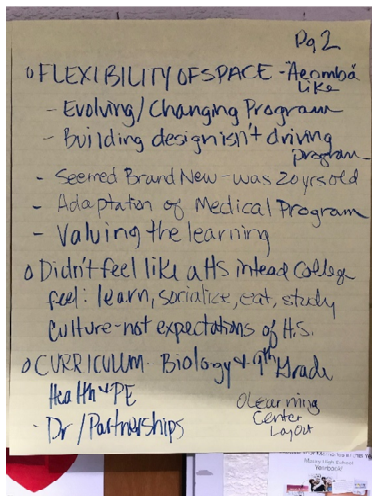 Pg 2
o FLEXIBILITY OF SPACE - "Aemmba"
Like
- Evolving/Changing Program
- Building design isn't driving
program
- Seemed Brand New - was 20 yrs old
- Adaptation of Medical Program
- Valuing the learning
o Didn't feel like a HS intead College
feel: learn, socialize, eat, study
Culture - not expectations of H.S.
o CURRICULUM - Biology + 9th Grade
Health + PE
- Dr / Partnerships
o Learning
Center
Layout
Yearbook!